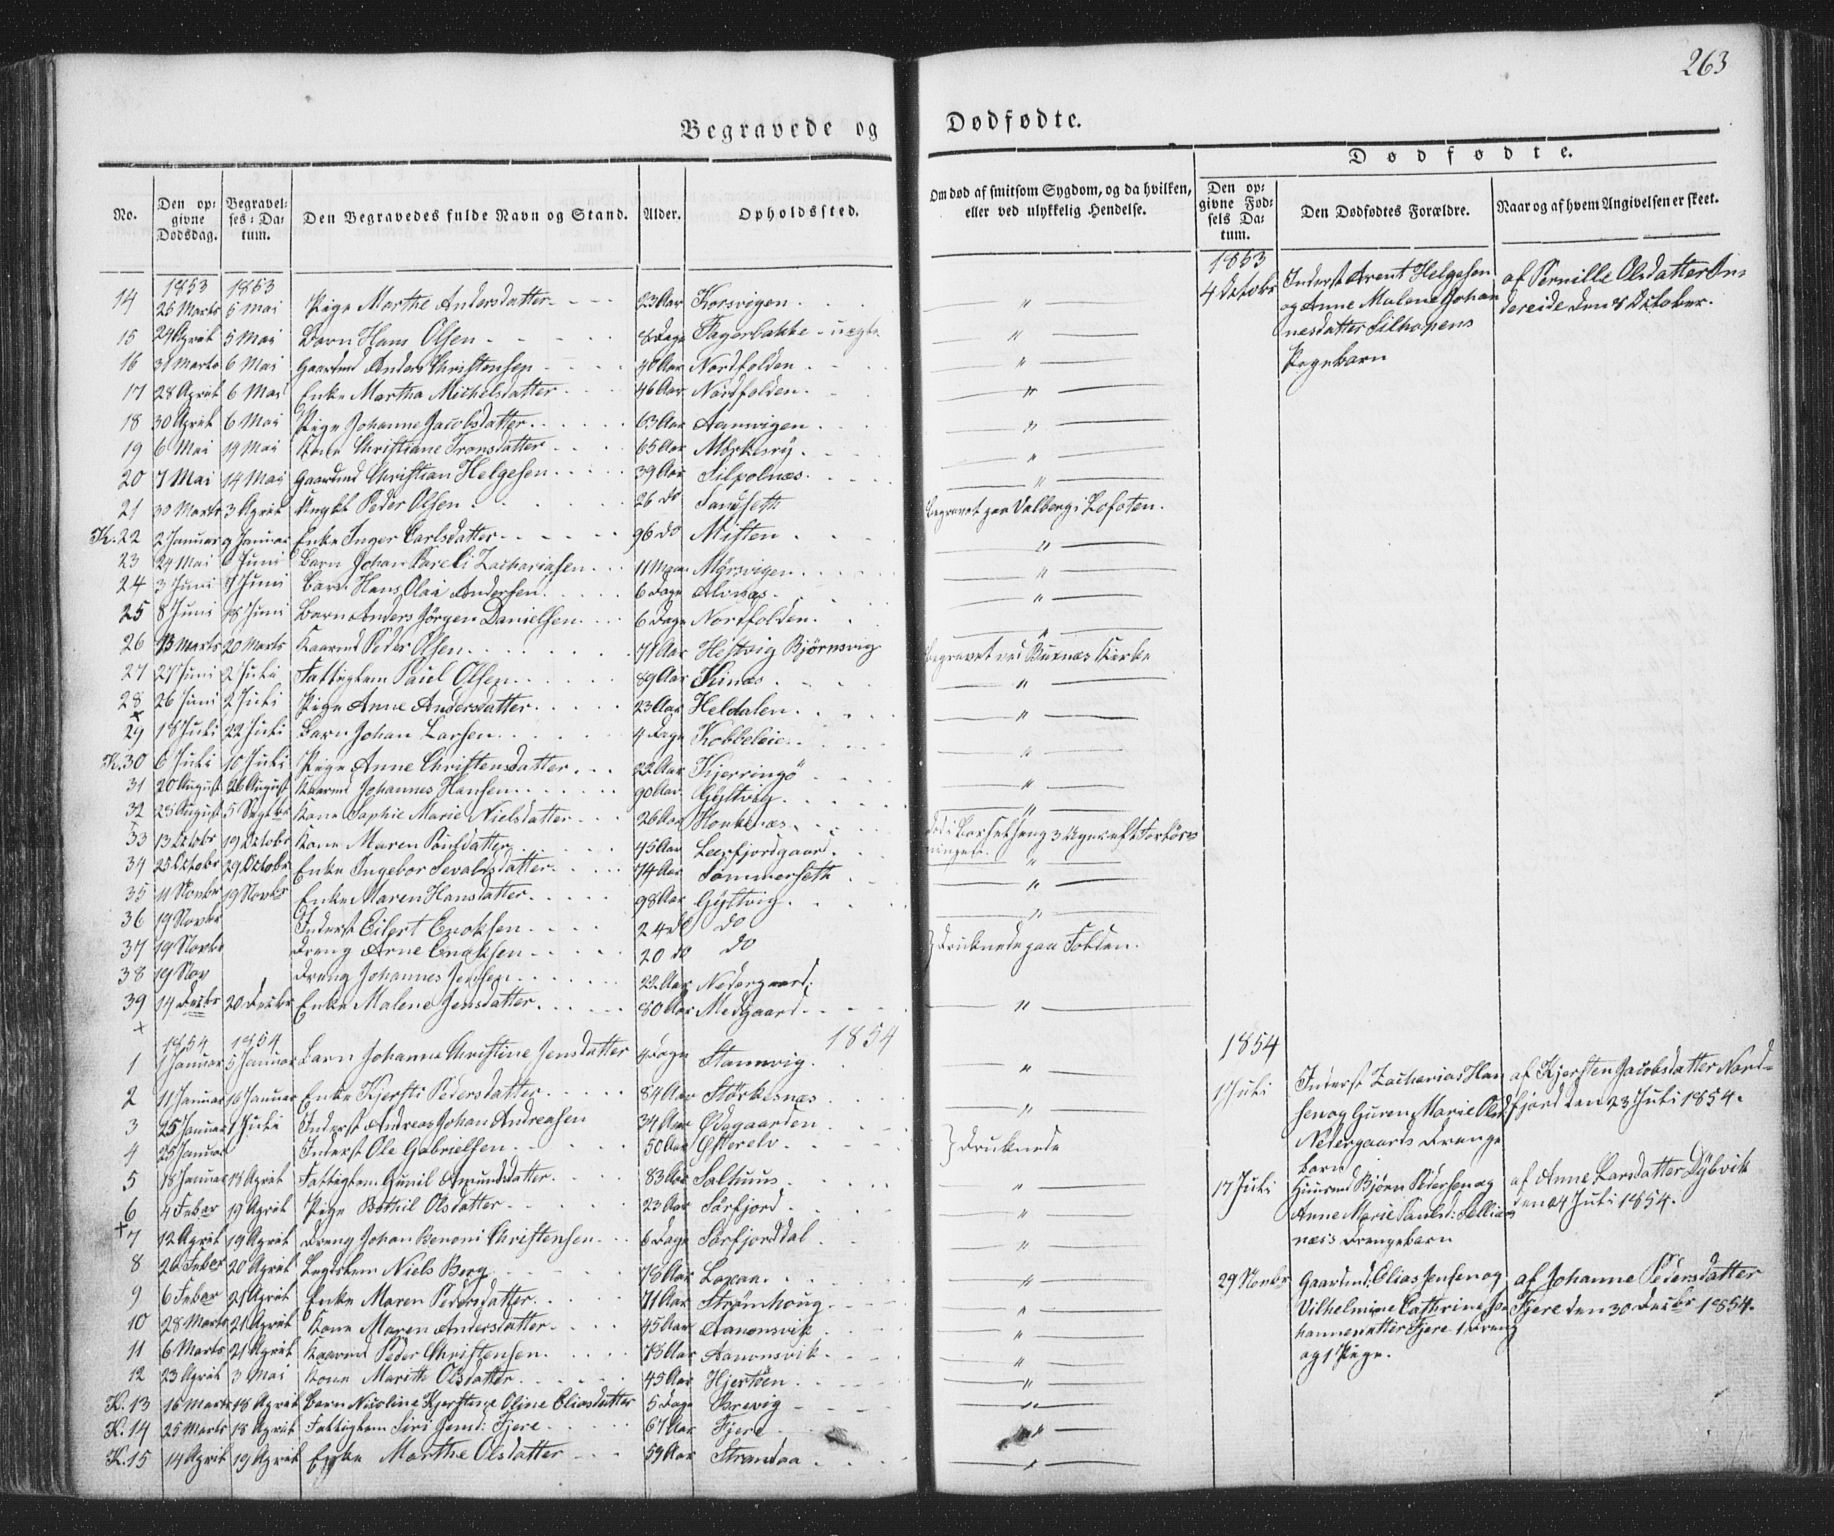 263
Begravede og Dødfødte.
Dødfødte.
No.
Den opgivne Dødsdag.
Begravelses-Datum.
Den Begravedes fulde Navn og Stand.
Alder.
Opholdssted.
Om død af smitsom Sygdom, og da hvilken, eller ved ulykkelig Hendelse.
Den opgivne Fødsels Datum.
Den Dødfødtes Forældre.
Naar og af hvem Angivelsen er skeet.
1853 1853
14 26 Marts 5 Mai Pige Marthe Andersdatter 23 Aar Korsvigen "
15 24 April 5 Mai Barn Hans Olsen 8 Dage Fagerbakke - uægte "
16 31 Marts 6 Mai Gaardmd Anders Christensen 40 Aar Nordfolden "
17 28 April 6 Mai Enke Martha Michelsdatter 46 Aar Nordfolden "
18 30 April 6 Mai Pige Johanne Jacobsdatter 63 Aar Aanvigen "
19 6 Mai 14 Mai Kone Christiane Tronsdatter 65 Aar Mørkesry "
20 7 Mai 14 Mai Gaardmd Christian Helgesen 39 Aar Silpolnæs "
21 30 Marts 3 April Ungkl Peder Olsen 26 do Sandseth Begravet paa Valberg i Lofoten.
K. 22 2 Januar 9 Januar Enke Inger Carlsdatter 96 do Misten "
23 24 Mai 6 Juni Barn Johan Kareli Zachariasen 11 Maan Mørsvigen "
24 3 Juni 9 Juni Barn Hans Olai Andersen 6 Dage Alnæs "
25 8 Juni 18 Juni Barn Anders Jørgen Danielsen 6 Dage Nordfolden "
26 13 Marts 20 Marts Kaarmd Peder Olsen 71 Aar Hestvig Bjørnsvig Begravet ved Buxnæs Kirke
27 27 Juni 2 Juli Fattiglem Paul Olsen 89 Aar Kinæs "
28 26 Juni 2 Juli Pige Anne Andersdatter 23 Aar Heldalen "
29 18 Juli 22 Juli Barn Johan Larsen 4 Dage Kobbeleie "
K. 30 6 Juli 10 Juli Pige Anne Christensdatter 22 Aar Kjerringø "
31 20 August 26 August Kaarmd Johannes Hansen 90 Aar Gyltvig "
32 28 August 5 Septbr Kone Sophie Marie Nielsdatter 26 Aar Honkenæs død i Barselseng 3 Uger eft Forløsningen.
33 13 Octobr 19 Octobr Kone Maren Poulsdatter 45 Aar Leerfjordgaard "
34 25 Octobr 29 Octobr Enke Ingebor Sevaldsdatter 74 Aar Sommerseth "
35 11 Novbr 19 Novbr Enke Maren Hansdatter 98 Aar Gyltvig "
36 19 Novbr Inderst Eilert Enoksen 24 do do
37 19 Novbr Dreng Arne Enoksen 20 do do } Druknede paa Folden.
38 19 Nov Dreng Johannes Jensen 22 Aar Nedergaard
39 14 Decbr 20 Decbr Enke Malene Jensdatter 80 Aar Medgaard "
1854 1854 1854
1 1 Januar 5 Januar Barn Johanne Christine Jensdatter 4 Dage Stamnvig "
2 11 Januar 16 Januar Enke Kjersti Pedersdatter 84 Aar Størkesnæs "
3 25 Januar 1 Juli Inderst Andreas Johan Andreasen 34 Aar Ødegaarden
4 25 Januar Inderst Ole Gabrielsen 50 Aar Østerelv } Druknede
5 18 Januar 19 April Fattiglem Gunil Amundsdatter 83 Aar Salhuus "
6 4 Febar 19 April Pige Bothil Olsdatter 23 Aar Sørfjord "
7 12 April 19 April Dreng Johan Benoni Christensen 6 Dage Sørfjorddal "
8 26 Feber 20 April Legslem Niels Berg 78 Aar Lapaa "
9 6 Febar 21 April Enke Maren Pedersdatter 71 Aar Strømhoug "
10 28 Marts 21 April Kone Maren Andersdatter 45 Aar Aanonsvik "
11 6 Marts 21 April Kaarmd Peder Christensen 73 Aar Aanonsvik "
12 23 April 3 Mai Kone Marith Olsdatter 45 Aar Hjertøen "
K. 13 16 Marts 18 April Barn Nicoline Kjerstine Oline Eliasdatter 5 Dage Brevig "
K. 14 25 Marts 18 April Fattiglem Siri Jensd: Fjere 67 Aar Fjere "
K. 15 14 April 19 April Enke Marthe Olsdatter 59 Aar Strandaa "
1853
4 Octobr Inderst Arent Helgesen og Anne Malene Johannesdatter Silhopens Pigebarn
af Pernille Olsdatter Indereide den 8 October.
1854
1 Juli Inderst Zacharias Hansen og Guren Marie Olsd Nedergaards Drengebarn
af Kjersten Jacobsdatter Nordfjord den 23 Juli 1854.
17 Juli Huusmd Bjørn Pedersen og Anne Marie Paulsd: Tellienæs's Drengebarn
af Anne Larsdatter Dybvik den 24 Juli 1854.
29 Novbr Gaardmd: Elias Jensen og Vilhelmine Cathrine Johannesdatter Fjere 1 Dreng og 1 Pige.
af Johanne Pedersdatter Fjere den 30 Decbr 1854.